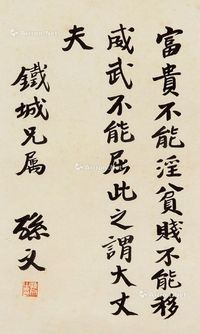 富貴不能淫貧賤不能移
威武不能屈此之謂大丈
夫
鐵城兄属
孫文